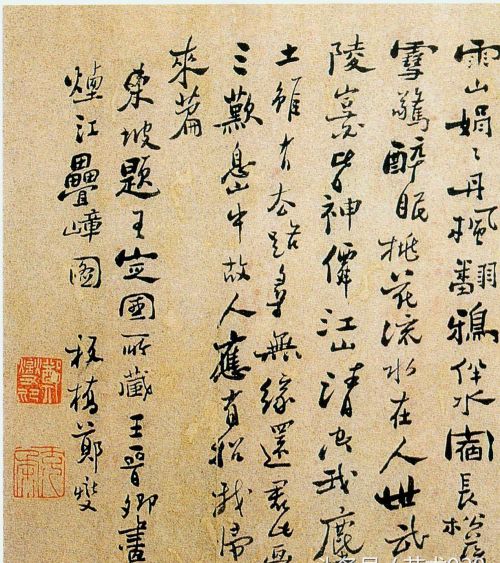 雨山娟〻丹楓翻鴉伴水宿長松落
雪驚醉眠桃花流水在人世武
陵豈皆神僊江山清空我塵
土雖有去路尋無緣還君此畫
三歎息山中故人應有招我歸
來篇
東坡題王定國所藏王晉卿畫
煙江疊嶂圖 板橋鄭燮